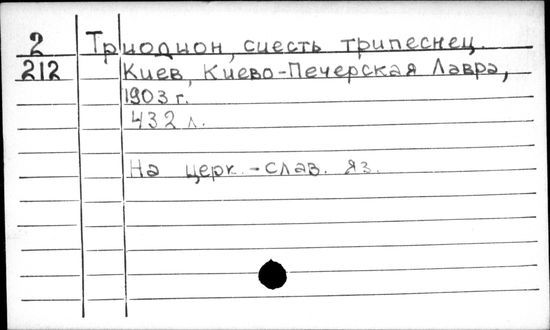 2 Триодион, сиесть трипеснец.
212 Киев, Киево-Печерская Лавра,
1903 г.
432 л.
На церк.-слав. яз.